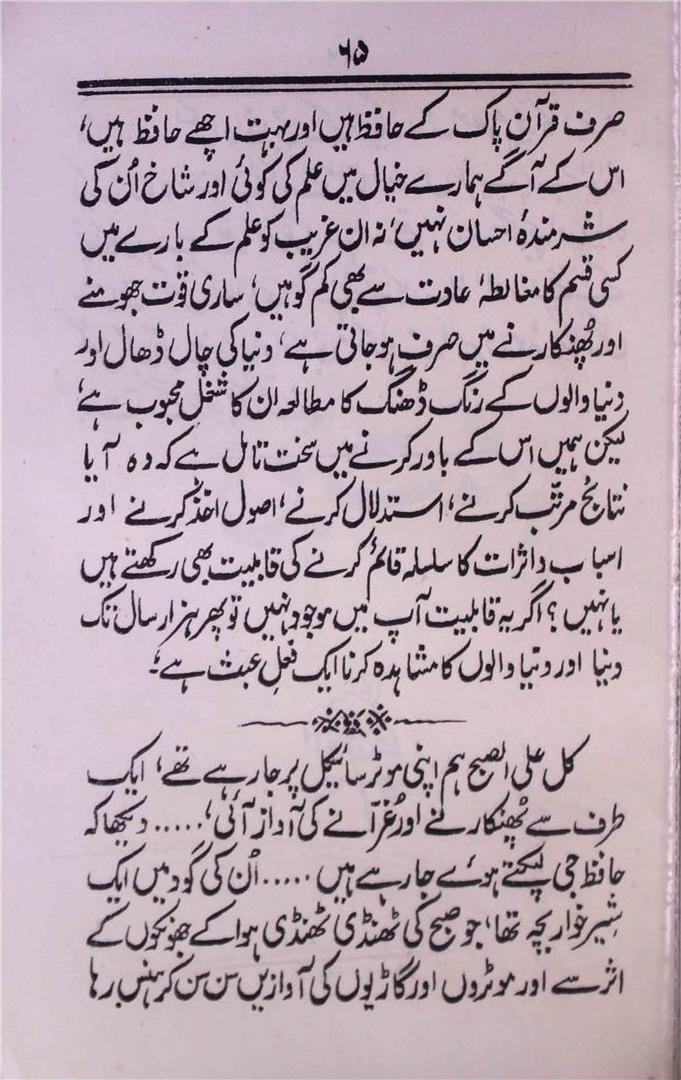 ۶۵
صرف قرآن پاک کے حافظ ہیں اور بہت اچھے حافظ ہیں،
اس کے آگے ہمارے خیال میں علم کی کوئی اور شاخ اُن کی
شرمندۂ احسان نہیں، نہ ان غریب کو علم کے بارے میں
کسی قسم کا مغالطہ، عادت سے بھی کم گو ہیں، ساری قوت جھومنے
اور پُھنکارنے میں صرف ہو جاتی ہے، دنیا کی چال ڈھال اور
دنیا والوں کے رنگ ڈھنگ کا مطالعہ ان کا شغل محبوب ہے،
لیکن ہمیں اس کے باور کرنے میں سخت تامل ہے کہ وہ آیا
نتائج مرتّب کرنے، استدلال کرنے، اصول اخذ کرنے اور
اسباب و اثرات کا سلسلہ قائم کرنے کی قابلیت بھی رکھتے ہیں
یا نہیں؟ اگر یہ قابلیت آپ میں موجود نہیں تو پھر ہزار سال تک
دنیا اور دنیا والوں کا مشاہدہ کرنا ایک فعلِ عبث ہے۔
کل علی الصبح ہم اپنی موٹر سائیکل پر جا رہے تھے، ایک
طرف سے پُھنکارنے اور غُرّانے کی آواز آئی، ..... دیکھا کہ
حافظ جی لپکتے ہوئے جا رہے ہیں ..... اُن کی گود میں ایک
شِیر خوار بچہ تھا، جو صبح کی ٹھنڈی ٹھنڈی ہوا کے جھونکوں کے
اثر سے اور موٹروں اور گاڑیوں کی آوازیں سن سن کر ہنس رہا